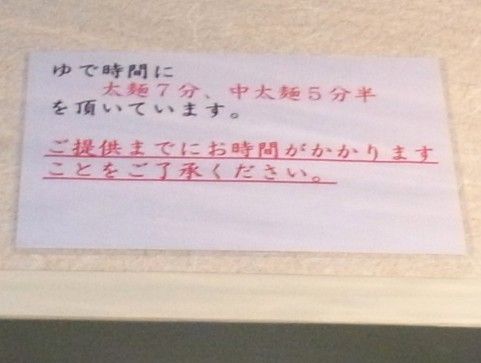 ゆで時間に
太麺7分、中太麺5分半
を頂いています。
ご提供までにお時間がかかります
ことをご了承ください。